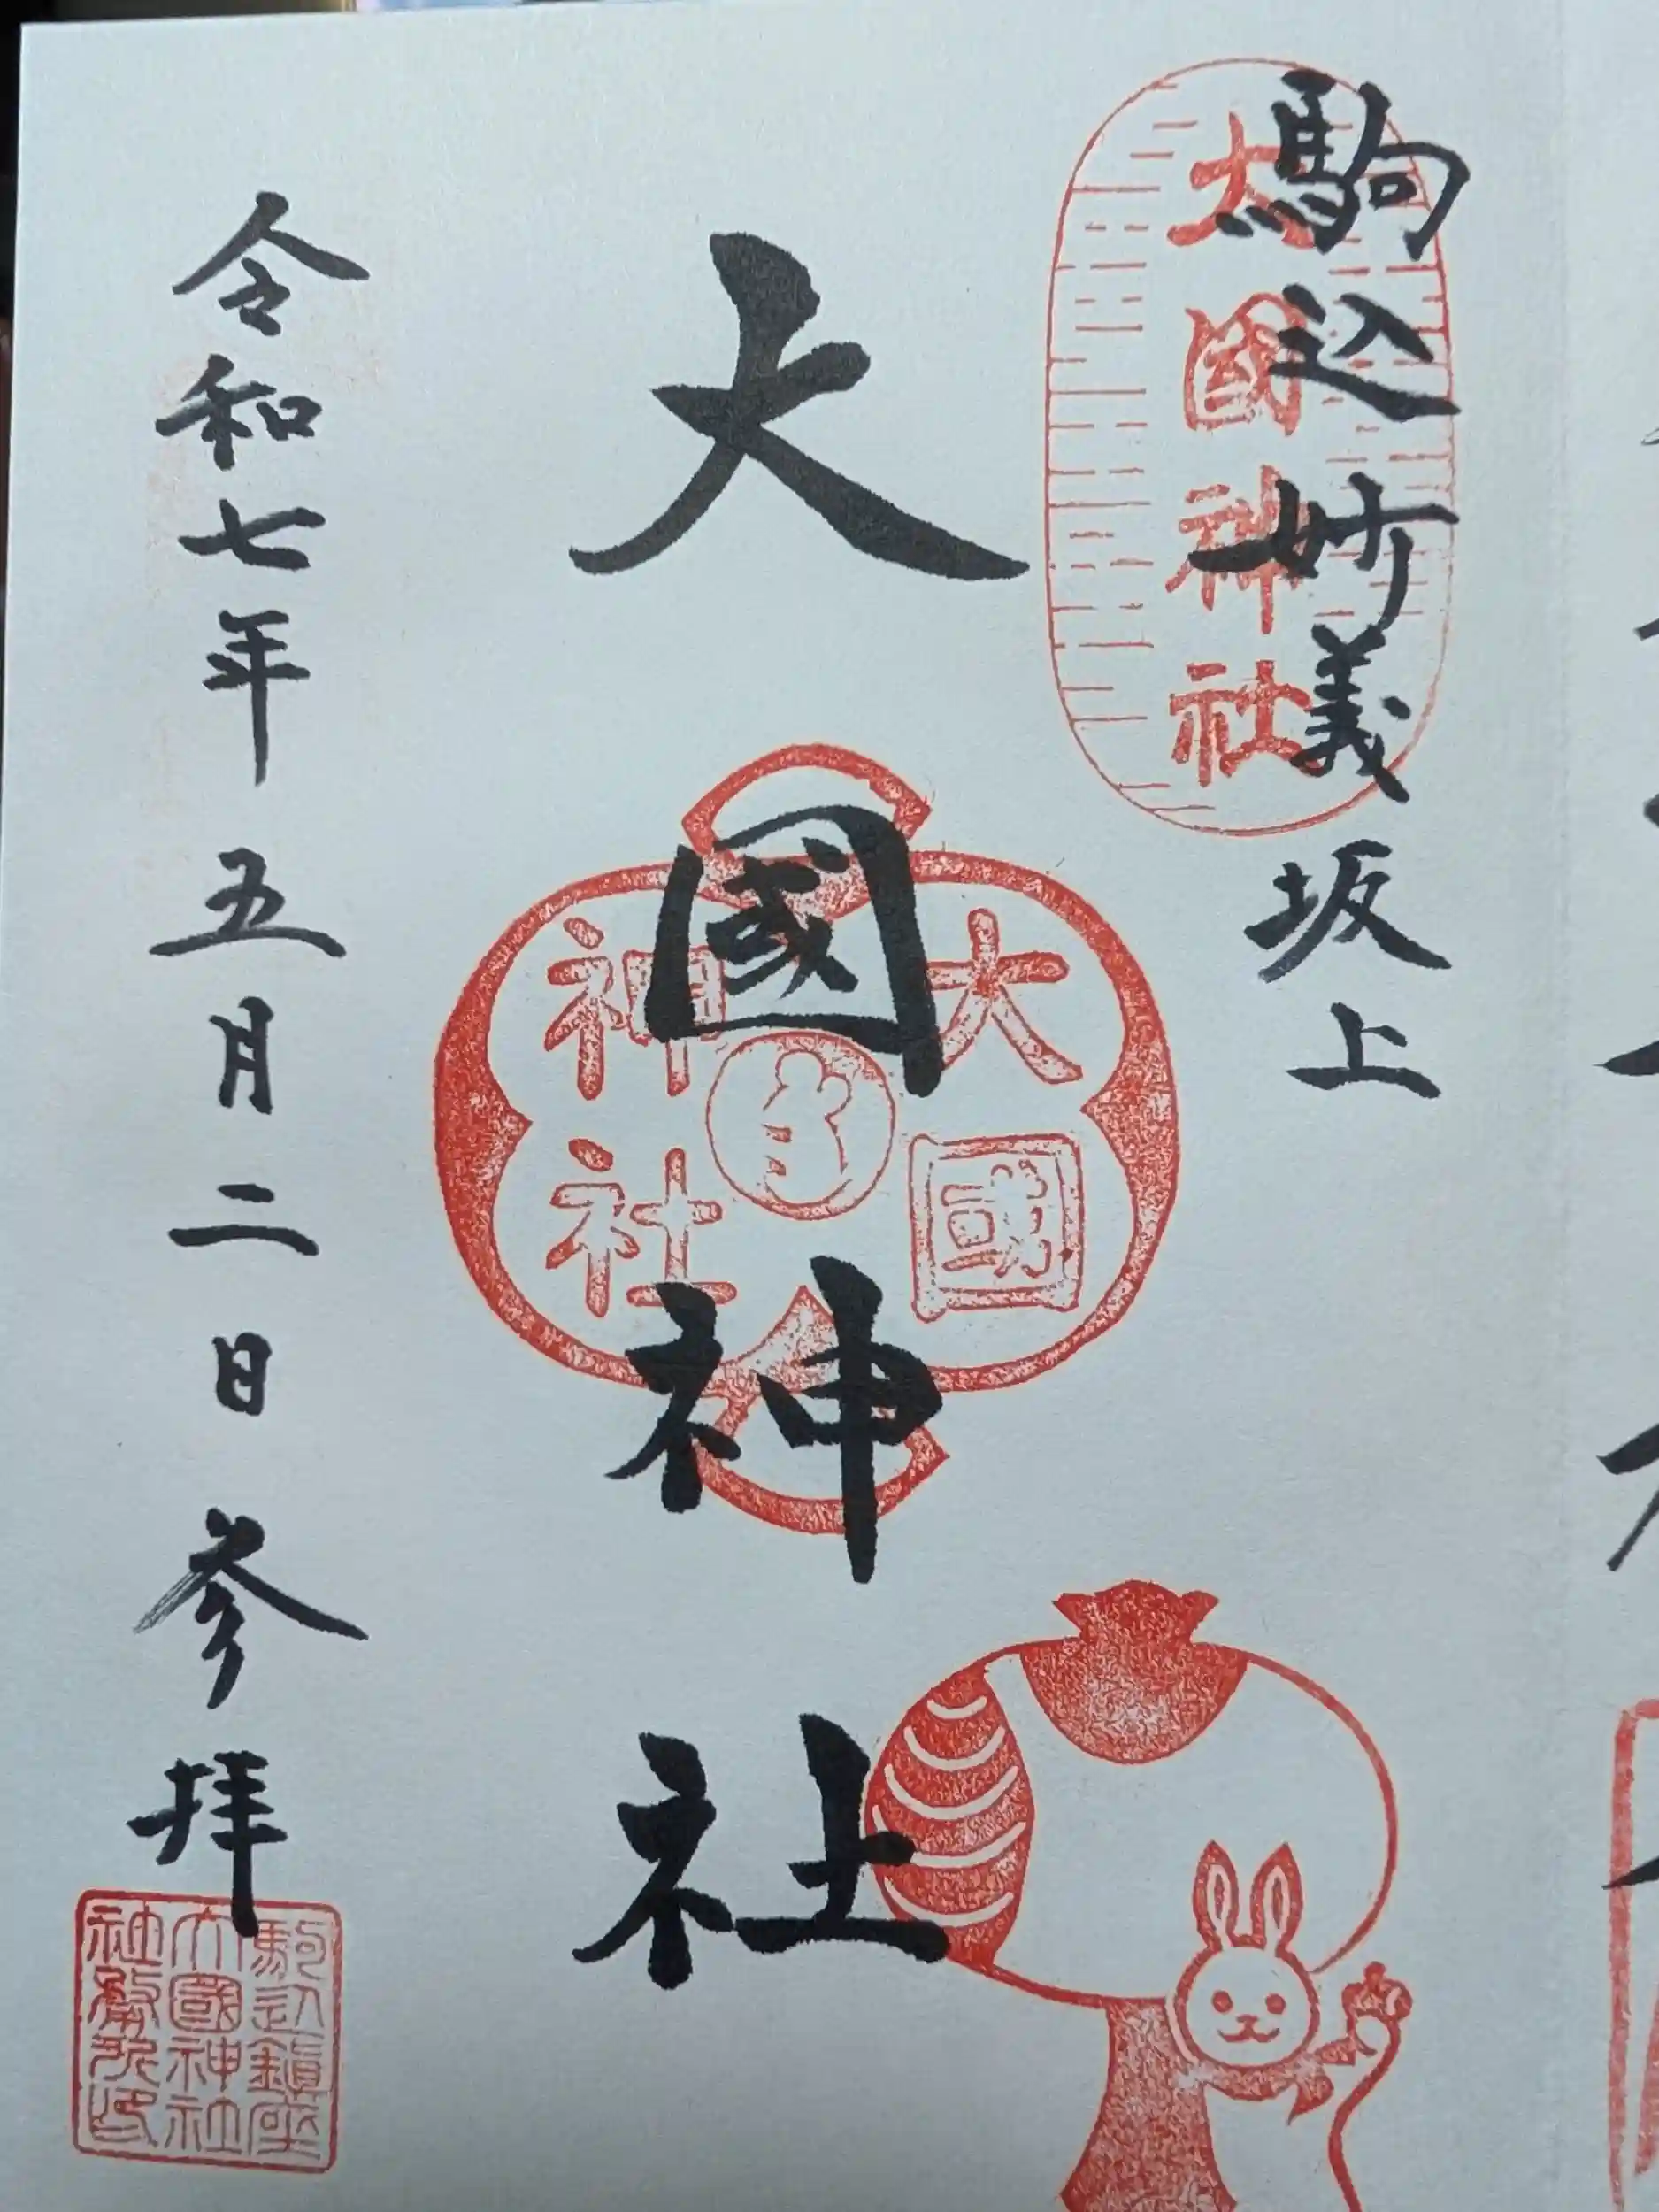 駒込妙義坂上
大國神社
大國神社
大國神社
令和七年五月二日参拝
駒込鎮座
大國神社
社務所印